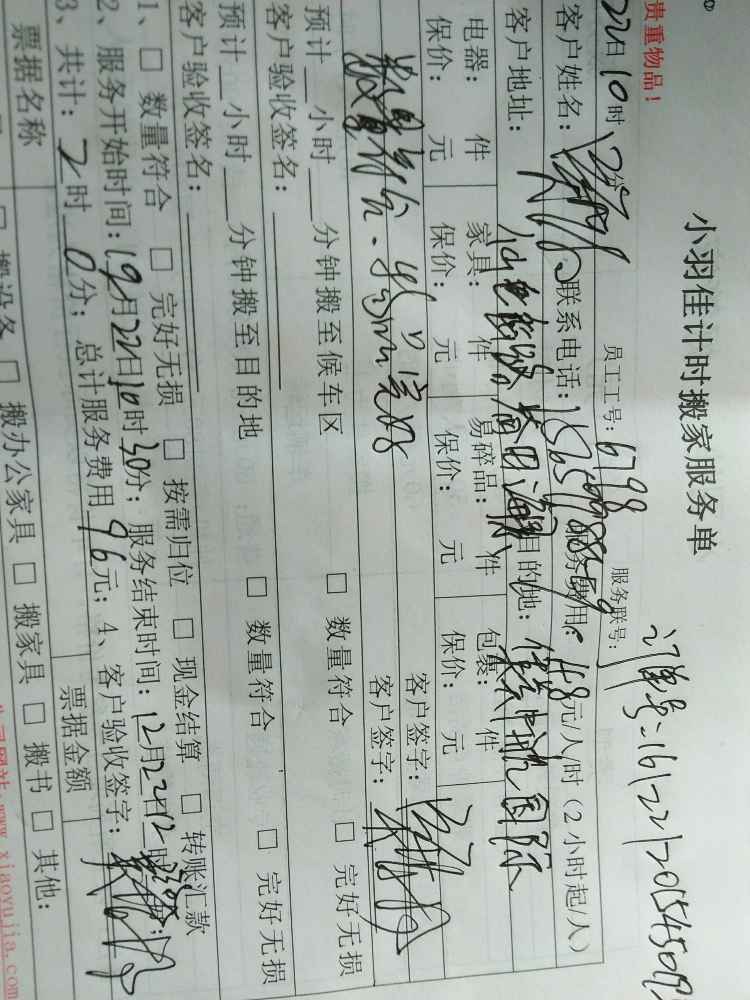 小羽佳计时搬家服务单
贵重物品！ 员工工号：6798 服务联号：
22日10时
客户姓名： 联系电话： 服务费用：48元/人/时（2小时起/人）
客户地址： 目的地： 国际
电器： 件 家具： 件 易碎品： 件 包裹： 件 客户签字：
保价： 元 保价： 元 保价： 元 保价： 元
数量符合、物品完好 客户签字：
预计 小时 分钟搬至候车区 □ 数量符合 □ 完好无损
客户验收签名：
预计 小时 分钟搬至目的地 □ 数量符合 □ 完好无损
客户验收签名：
1、□ 数量符合 □ 完好无损 □ 按需归位 □ 现金结算 □ 转账汇款
2、服务开始时间： 月22日10时30分；服务结束时间：12月22日12时30分；
3、共计：2时0分；总计服务费用96元；4、客户验收签字：
票据名称 票据金额
□ 搬设备 □ 搬办公家具 □ 搬家具 □ 搬书 □ 其他：
公司网站：www.xiaoyujia.com